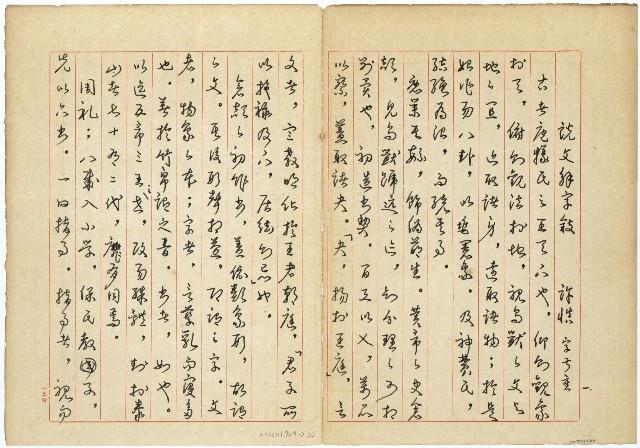 說文解字敘 許慎 字叔重
古者庖犧氏之王天下也，仰則觀象
於天，俯則觀法於地，視鳥獸之文與
地之宜，近取諸身，遠取諸物；於是
始作易八卦，以垂憲象。及神農氏，
結繩為治，而統其事。
庶業其繁，飾偽萌生。黃帝之史倉
頡，見鳥獸蹄迒之迹，知分理之可相
別異也，初造書契。百工以乂，萬品
以察，蓋取諸夬。「夬，揚於王庭」，言
文者，宣教明化於王者朝庭，「君子所
以施祿及下，居德則忌也。」
倉頡之初作書，蓋依類象形，故謂
之文。其後形聲相益，即謂之字。文
者，物象之本；字者，言孳乳而寖多
也。著於竹帛謂之書。書者，如也。
以迄五帝三王之世，改易殊體，封於泰
山者七十有二代，靡有同焉。
周禮：八歲入小學，保氏教國子，
先以六書。一曰指事。指事者，視而